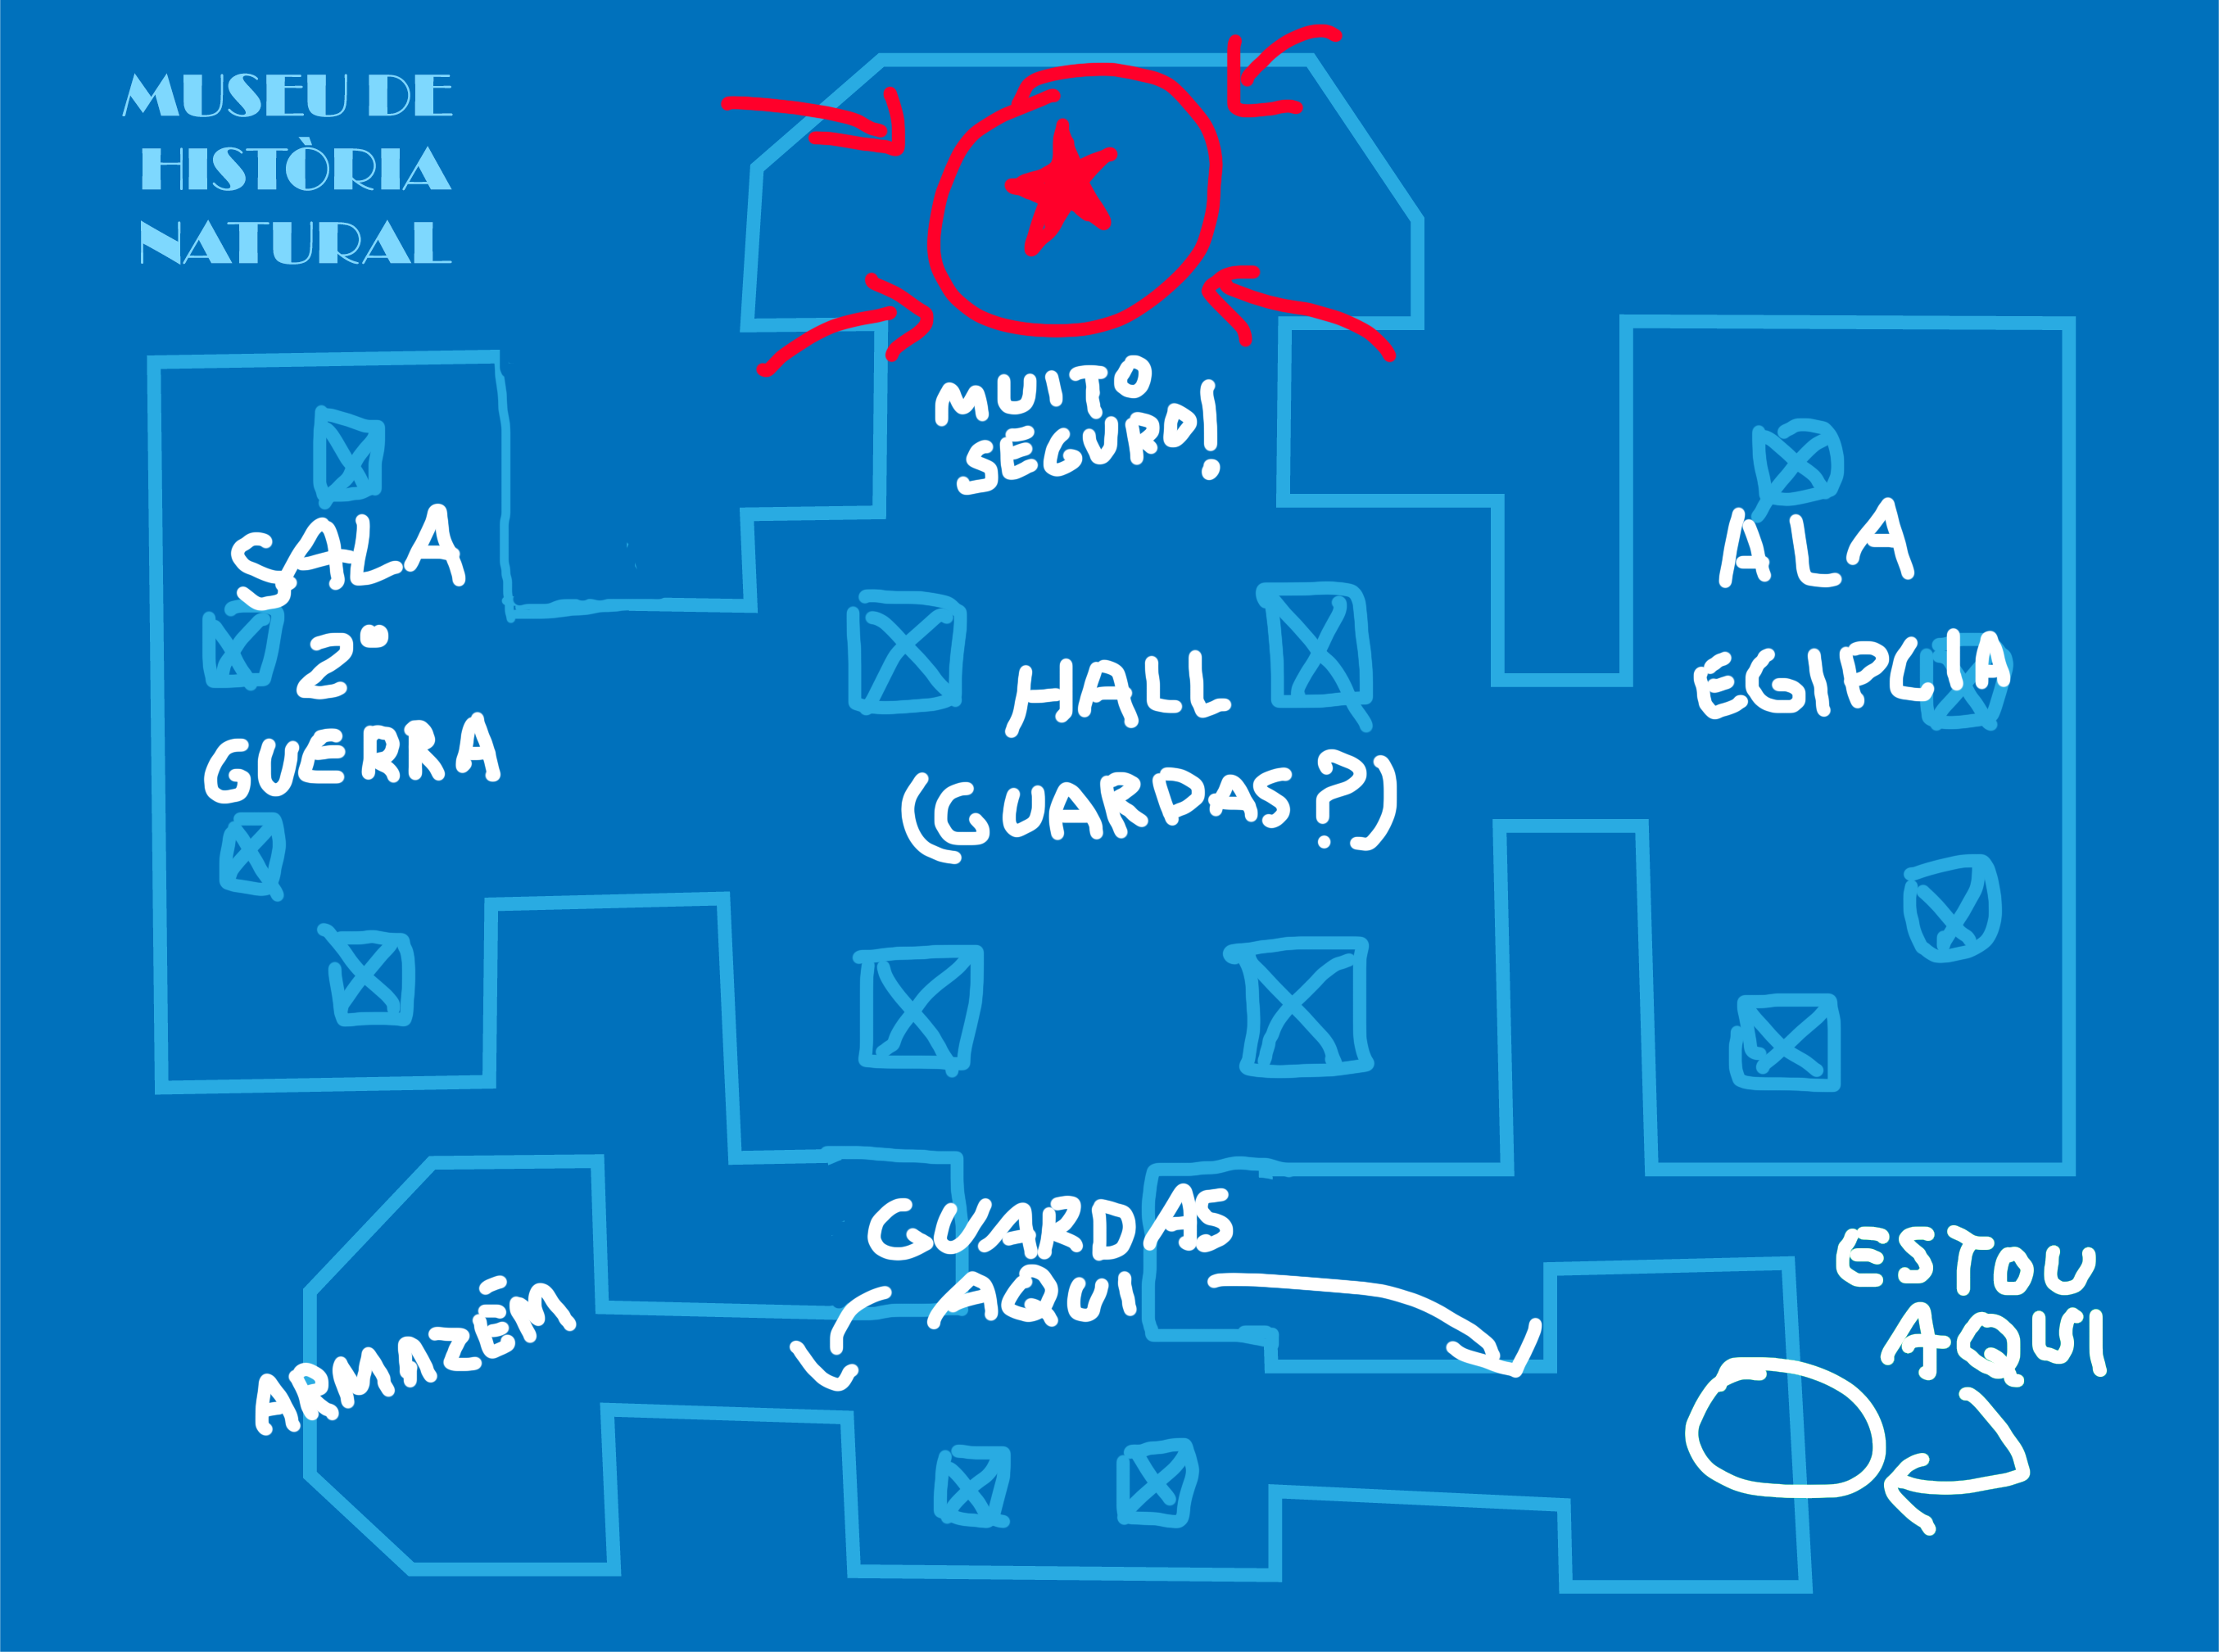 MUSEU DE
HISTÒRIA
NATURAL
MUITO
SEGURO!
SALA
2ª
GUERRA
HALL
(GUARDAS?)
ALA
EGIPCIA
GUARDAS
AQUI
ARMAZÉM
ESTOU
AQUI